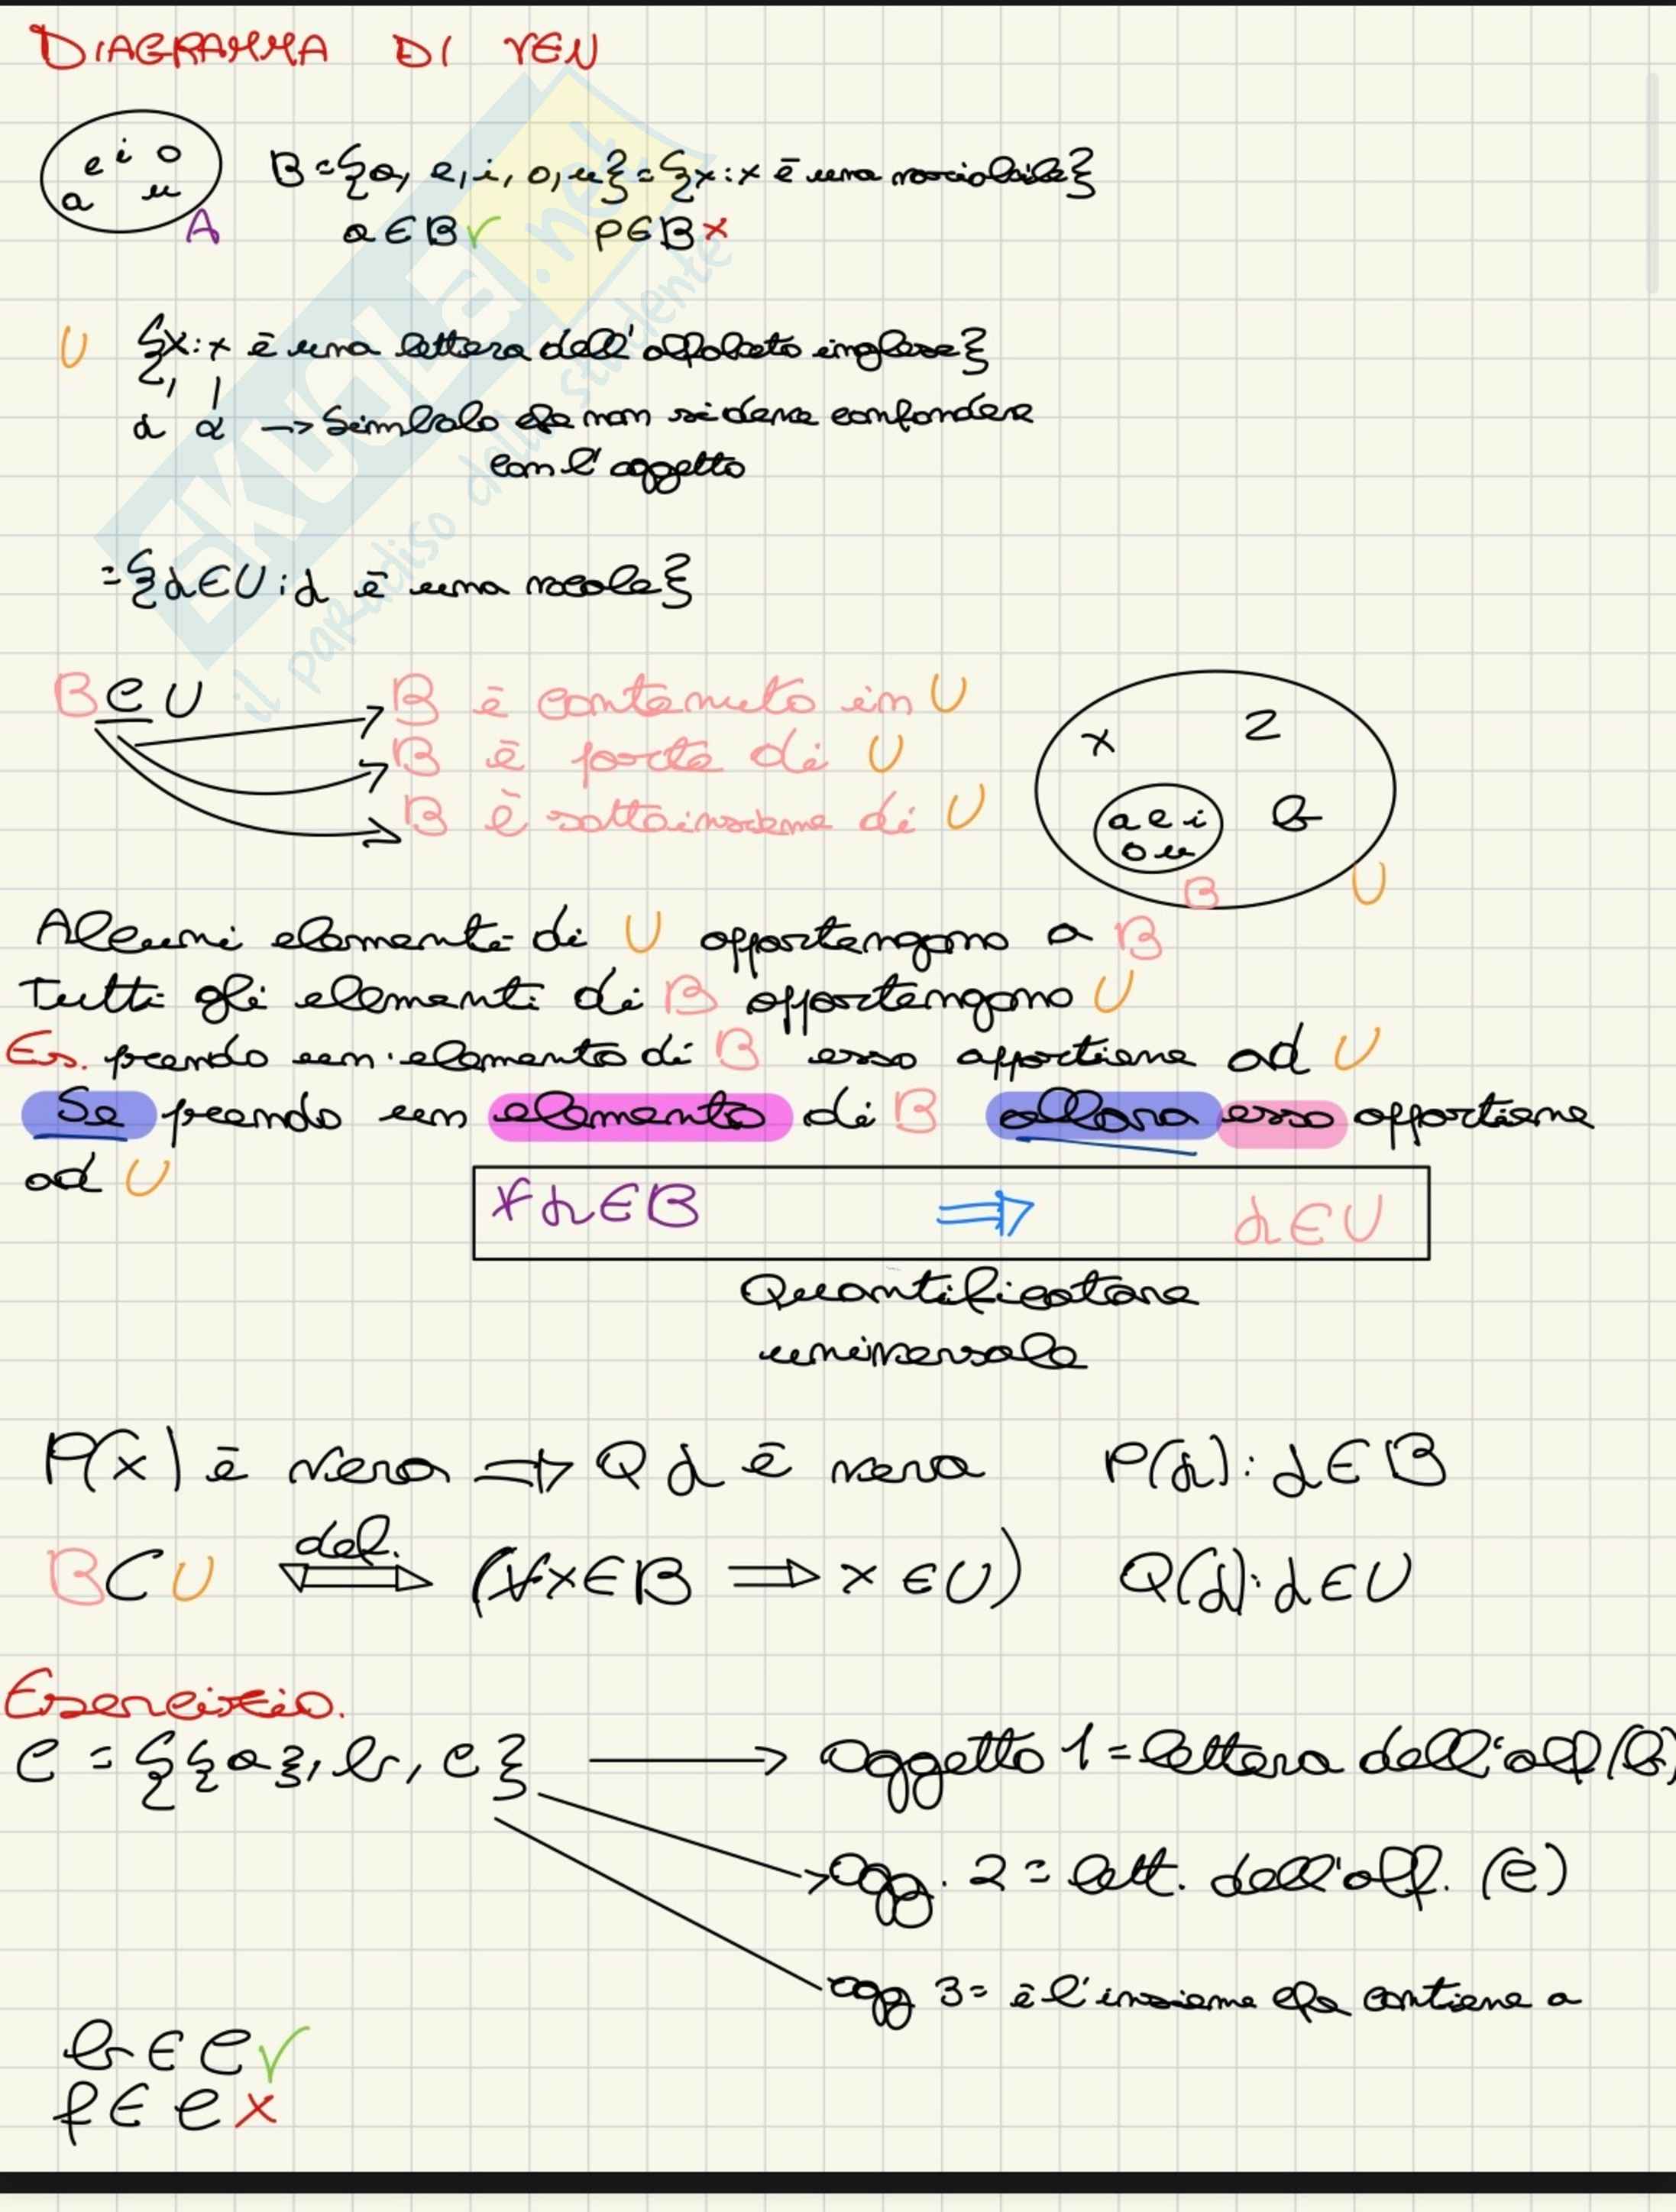 DIAGRAMMA DI VEN
e i o
a u
A
B={a, e, i, o, u}={x:x è una
a∈B✓ p∈B×
U {x:x è una lettera dell'alfabeto inglese}
α α → Simbolo che non si deve confondere
con l'oggetto
={α∈U:α è una vocale}
B ⊆ U
B è contenuto in U
B è parte di U
B è sottoinsieme di U
x z
a e i b
o u
B U
Alcuni elementi di U appartengono a B
Tutti gli elementi di B appartengono U
Es. prendo un elemento di B esso appartiene ad U
Se prendo un elemento di B allora esso appartiene
ad U
∀α∈B ⇒ α∈U
Quantificatore
universale
P(x) è vera ⇒ Q α è vera P(α): α∈B
B⊂U ⟺ def. (∀x∈B ⇒ x∈U) Q(α): α∈U
Esercizio.
C = {{a}, b, c} → Oggetto 1 = lettera dell'alf (b)
Ogg. 2 = lett. dell'alf. (c)
ogg 3= è l'insieme che contiene a
b ∈ C✓
f ∈ C×
SKUOLA.net
il paradiso dello studente